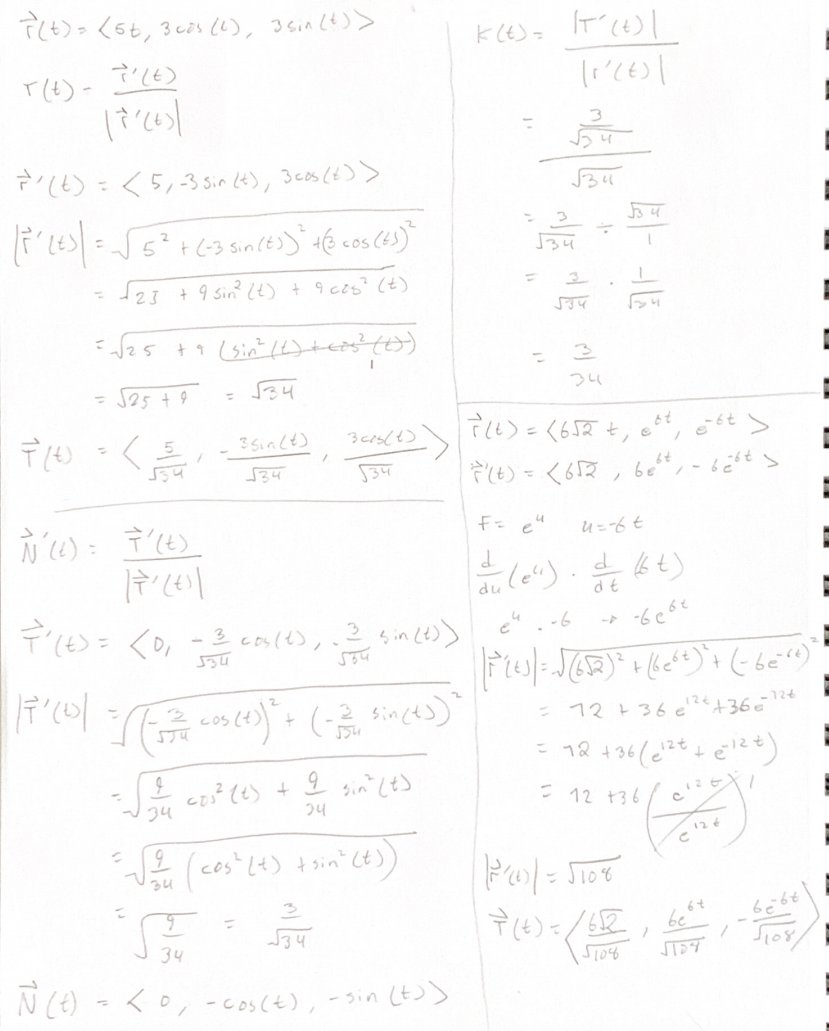 r⃗(t) = <5t, 3cos(t), 3sin(t)>
T(t) = r⃗'(t) / |r⃗'(t)|
r⃗'(t) = <5, -3sin(t), 3cos(t)>
|r⃗'(t)| = √(5² + (-3sin(t))² + (3cos(t))²)
= √(25 + 9sin²(t) + 9cos²(t))
= √(25 + 9(sin²(t) + cos²(t))) 1
= √(25 + 9) = √34
T⃗(t) = <5/√34, -3sin(t)/√34, 3cos(t)/√34>
N⃗'(t) = T⃗'(t) / |T⃗'(t)|
T⃗'(t) = <0, -3/√34 cos(t), -3/√34 sin(t)>
|T⃗'(t)| = √((-3/√34 cos(t))² + (-3/√34 sin(t))²)
= √(9/34 cos²(t) + 9/34 sin²(t))
= √(9/34 (cos²(t) + sin²(t)))
= √(9/34) = 3/√34
N⃗(t) = <0, -cos(t), -sin(t)>
K(t) = |T'(t)| / |r'(t)|
= (3/√34) / √34
= 3/√34 ÷ √34/1
= 3/√34 · 1/√34
= 3/34
r⃗(t) = <6√2 t, e^6t, e^-6t>
r⃗'(t) = <6√2, 6e^6t, -6e^-6t>
F = e^u u = -6t
d/du (e^u) · d/dt (6t)
e^u · -6 → -6e^6t
|r⃗'(t)| = √((6√2)² + (6e^6t)² + (-6e^-6t)²)
= 72 + 36e^12t + 36e^-12t
= 72 + 36(e^12t + e^-12t)
= 72 + 36(e^12t / e^12t) 1
|r⃗'(t)| = √108
T⃗(t) = <6√2/√108, 6e^6t/√108, -6e^-6t/√108>